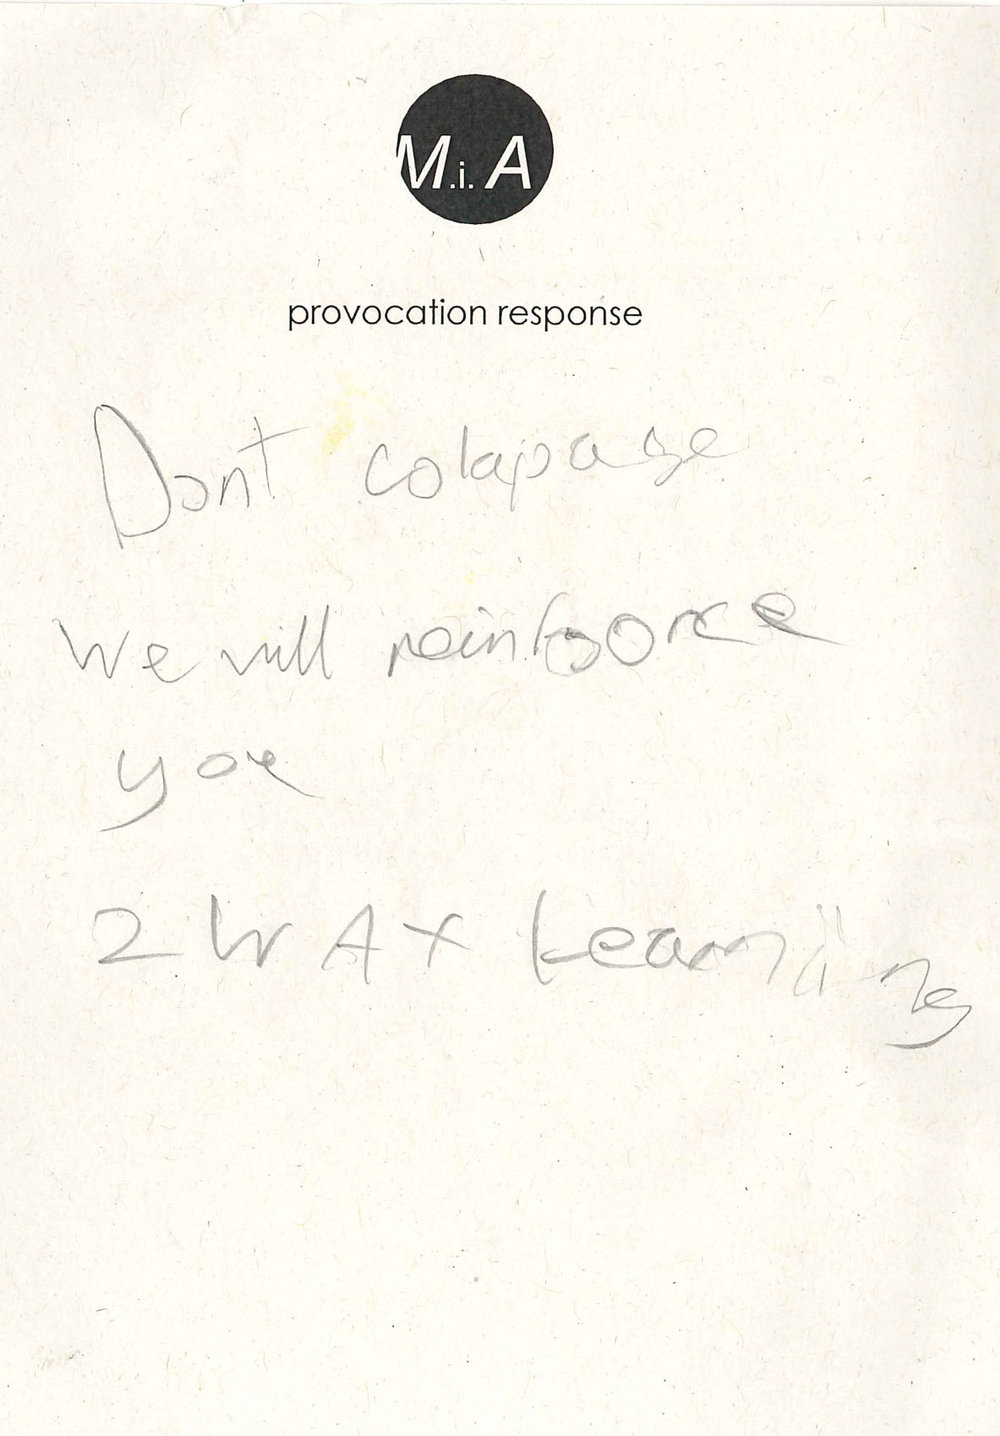 M.i.A
provocation response
Dont colapase
We will reinforce
you
2 WAY Learning